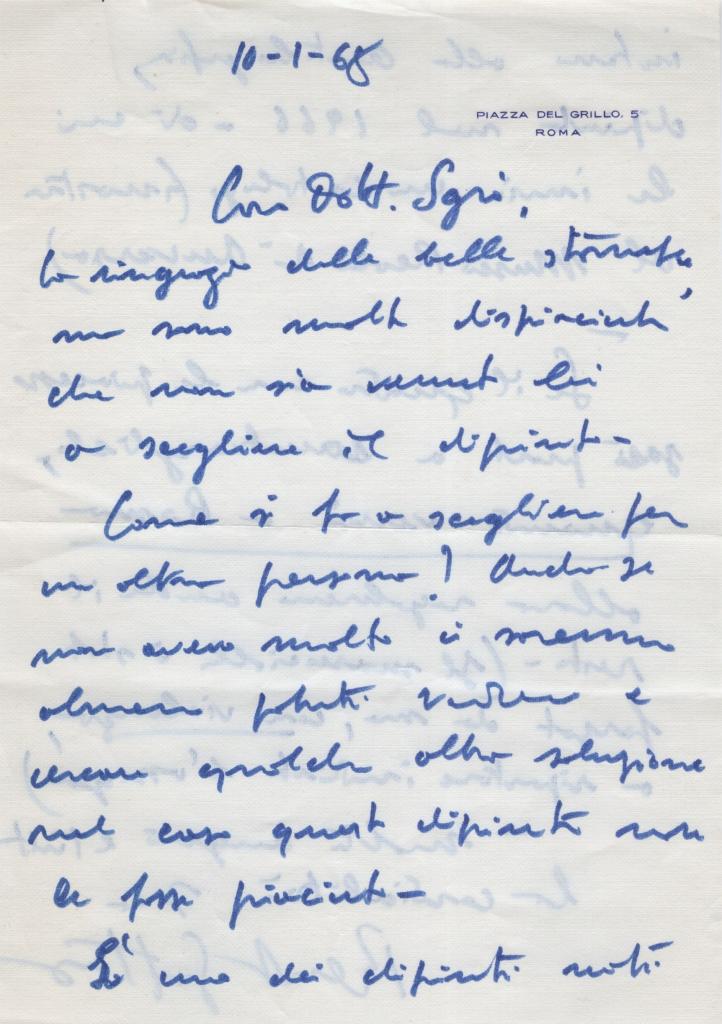 10-1-68
PIAZZA DEL GRILLO, 5
ROMA
Caro Dott. Sgrò,
la ringrazio delle belle stornate,
ma sono molto dispiaciuto
che non sia venuto lei
a scegliere il dipinto -
Come si fa a scegliere per
un altra persona! Anche se
non avevo molto ci saremmo
almeno potuti vedere e
cercare qualche altra soluzione
nel caso questo dipinto non
le fosse piaciuto -
È uno dei dipinti